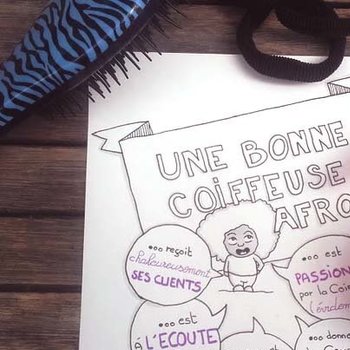 UNE BONNE
COIFFEUSE
AFRO
... reçoit
chaleureusement
SES CLIENTS
... est
PASSION
par la Coi
l'évidem
... est
à L'ECOUTE
... donne